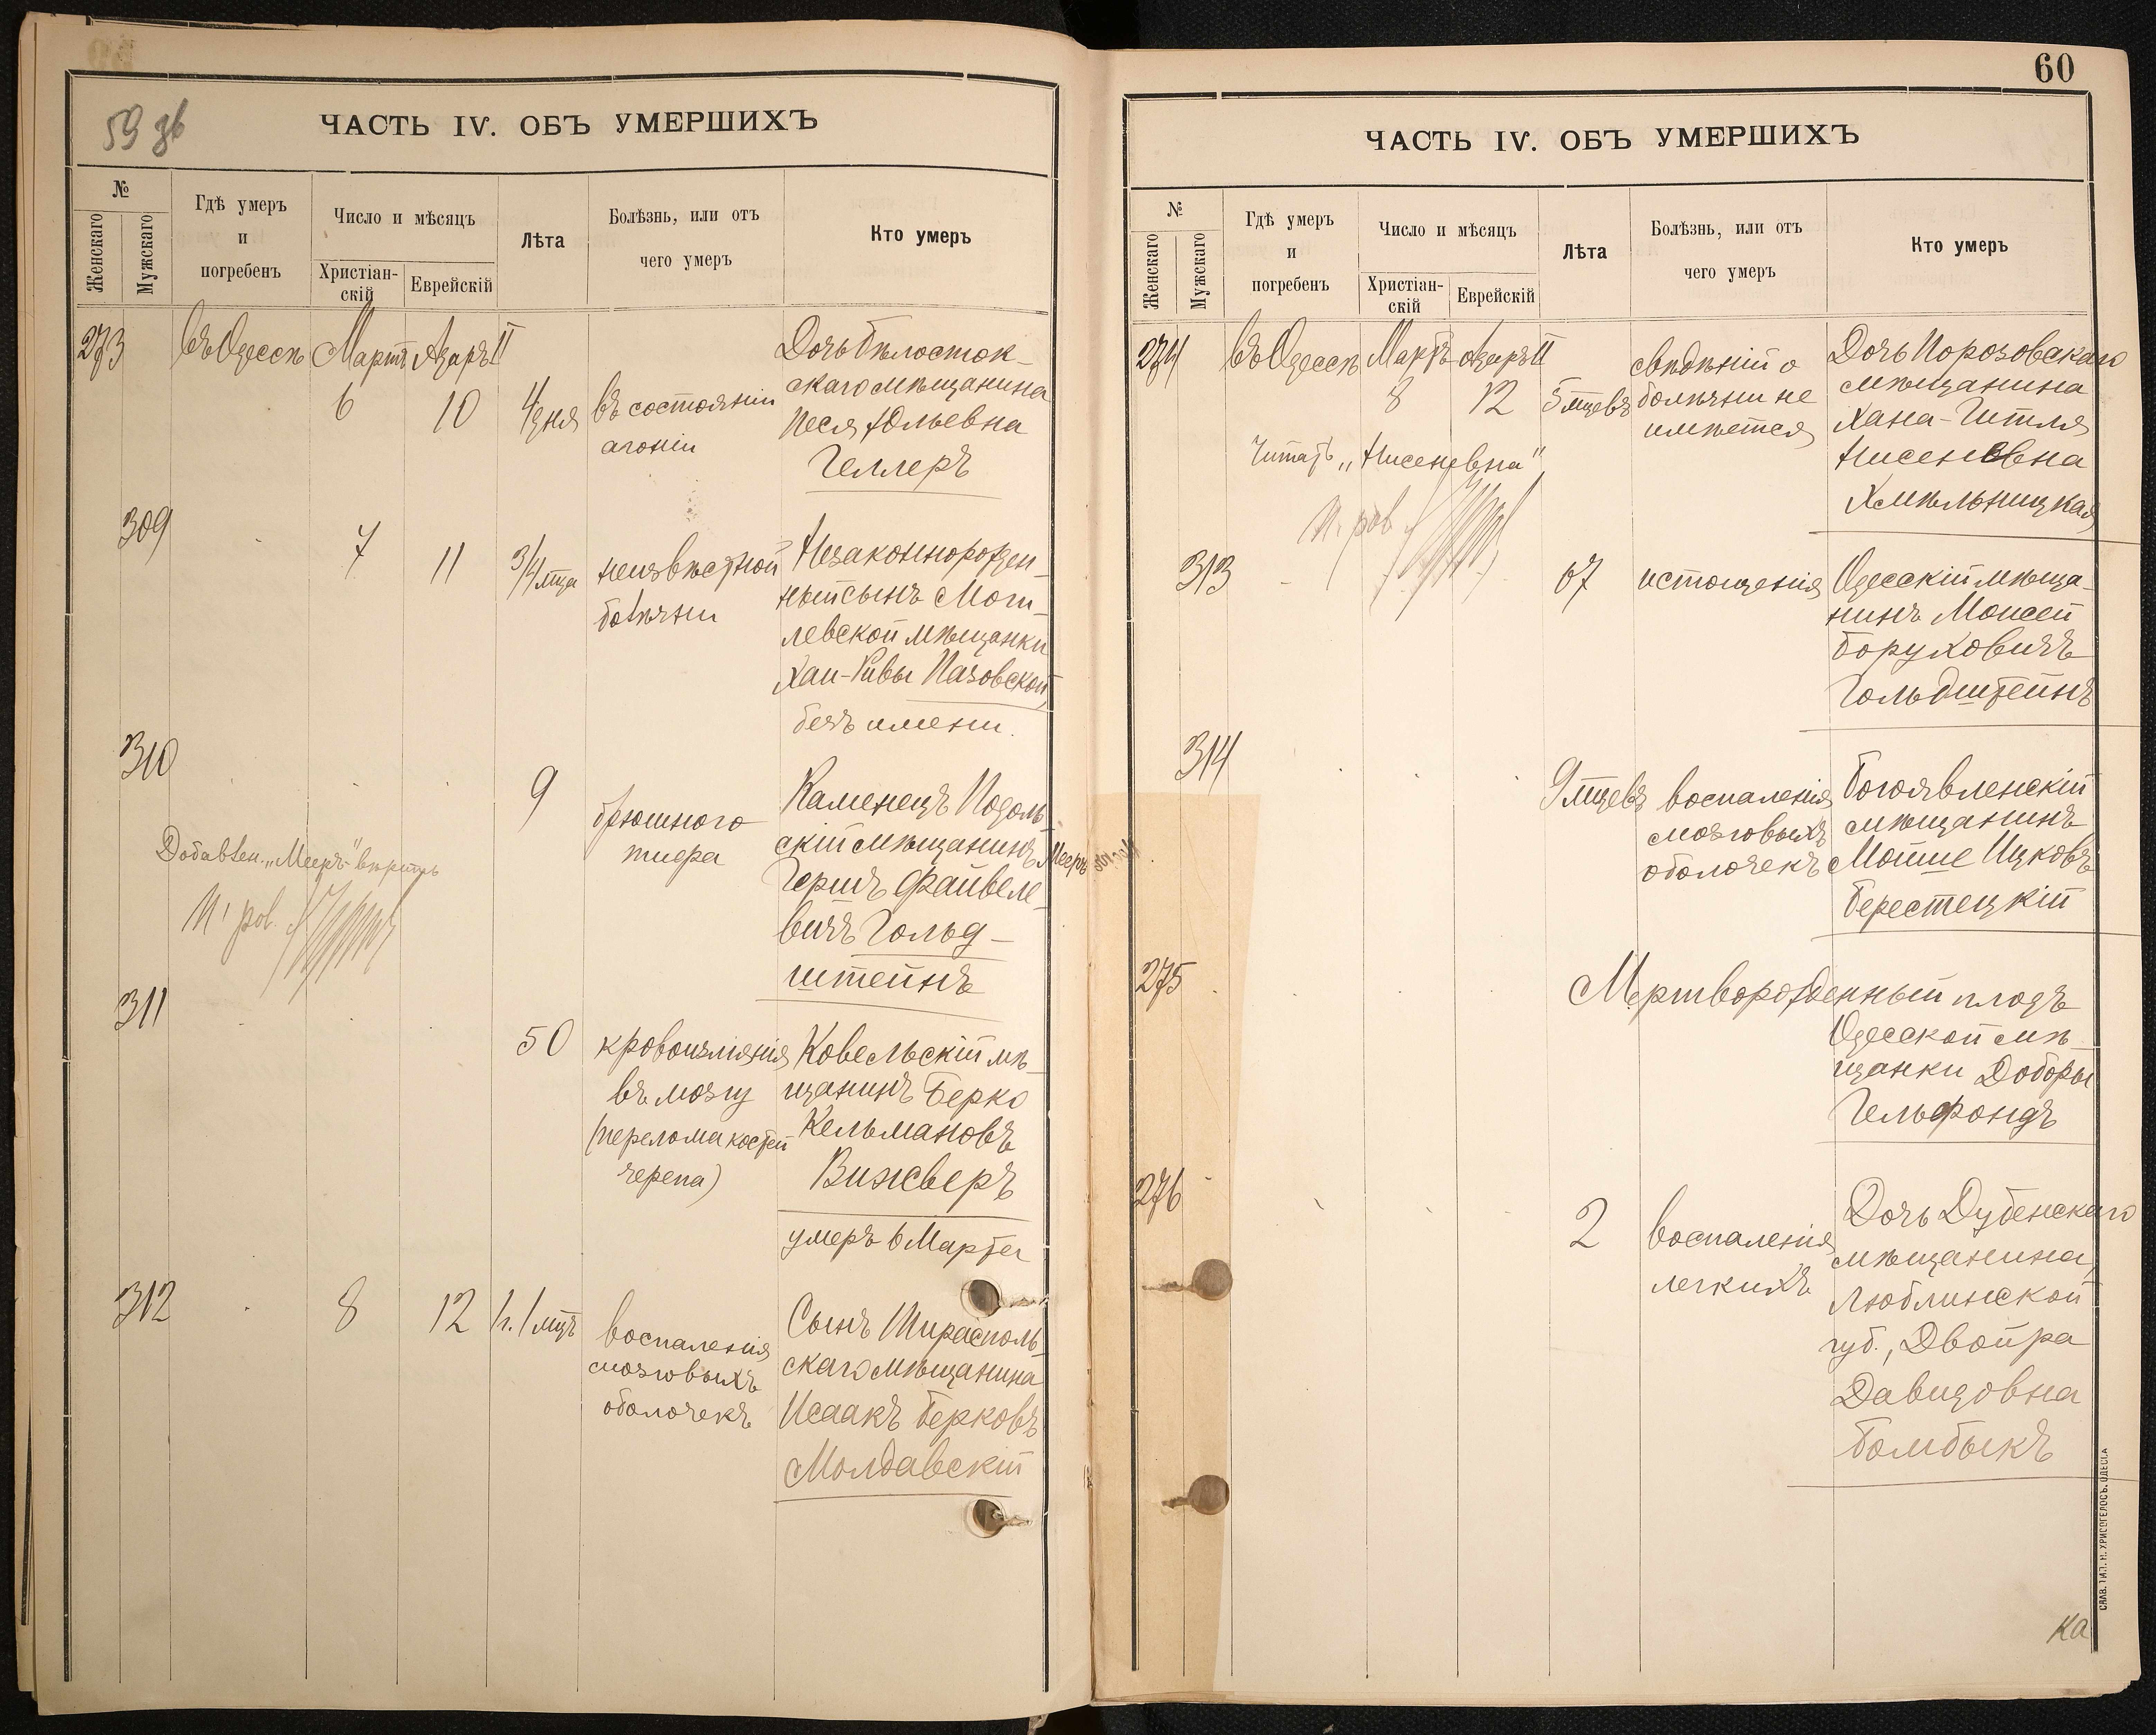 59 зв
ЧАСТЬ IV. ОБЪ УМЕРШИХЪ
№
Женскаго
Мужскаго
Гдѣ умеръ
и
погребенъ
Число и мѣсяцъ
Христіан-
скій
Еврейскій
Лѣта
Болѣзнь, или отъ
чего умеръ
Кто умеръ
273 въ Одессѣ Мартъ Адаръ II
6 10 4 дня
въ состояніи
агоніи
Дочь Бѣлосток-
скаго мѣщанина
Песя Юльевна
Геллеръ
309 7 11 3/4 мца
неизвѣстной
болѣзни
Незаконнорожден-
ный сынъ Моги-
левской мѣщанки
Хаи-Ривы Пазовской,
безъ имени.
310 9
брюшного
тифа
Каменецъ Подоль-
скій мѣщанинъ Мееръ
Гершъ Файвеле-
вичъ Гольд-
штейнъ
Добавлен. „Мееръ" вѣрить
311 50
кровоизліянія
въ мозгу
(перелома костей
черепа)
Ковельскій мѣ-
щанинъ Берко
Кельмановъ
Вижверъ
умеръ 6 Марта
312 8 12 1 г. 1 мцъ
воспаленія
мозговыхъ
оболочекъ
Сынъ Тирасполь-
скаго мѣщанина
Исаакъ Берковъ
Молдавскій
60
ЧАСТЬ IV. ОБЪ УМЕРШИХЪ
№
Женскаго
Мужскаго
Гдѣ умеръ
и
погребенъ
Число и мѣсяцъ
Христіан-
скій
Еврейскій
Лѣта
Болѣзнь, или отъ
чего умеръ
Кто умеръ
274 въ Одессѣ Мартъ Адаръ II
8 12 5 мцевъ
свѣдѣній о
болѣзни не
имѣется
Дочь Порозовскаго
мѣщанина
Хана-Гитля
Нисеновна
Хмѣльницкая
Читать „Нисеновна"
313 67
истощенія
Одесскій мѣща-
нинъ Моисей
Боруховичъ
Гольдштейнъ
314 9 мцевъ
воспаленія
мозговыхъ
оболочекъ
Богоявленскій
мѣщанинъ
Мойше Ицковъ
Берестецкій
275
Мертворожденный плодъ
Одесской мѣ-
щанки Доборы
Гельфондъ
276 2
воспаленія
легкихъ
Дочь Дубенскаго
мѣщанина,
Люблинской
губ., Двойра
Давидовна
Бомбыкъ
СЛАВ. ТИП. Н. ХРИСОГЕЛОСЪ. ОДЕССА
ка